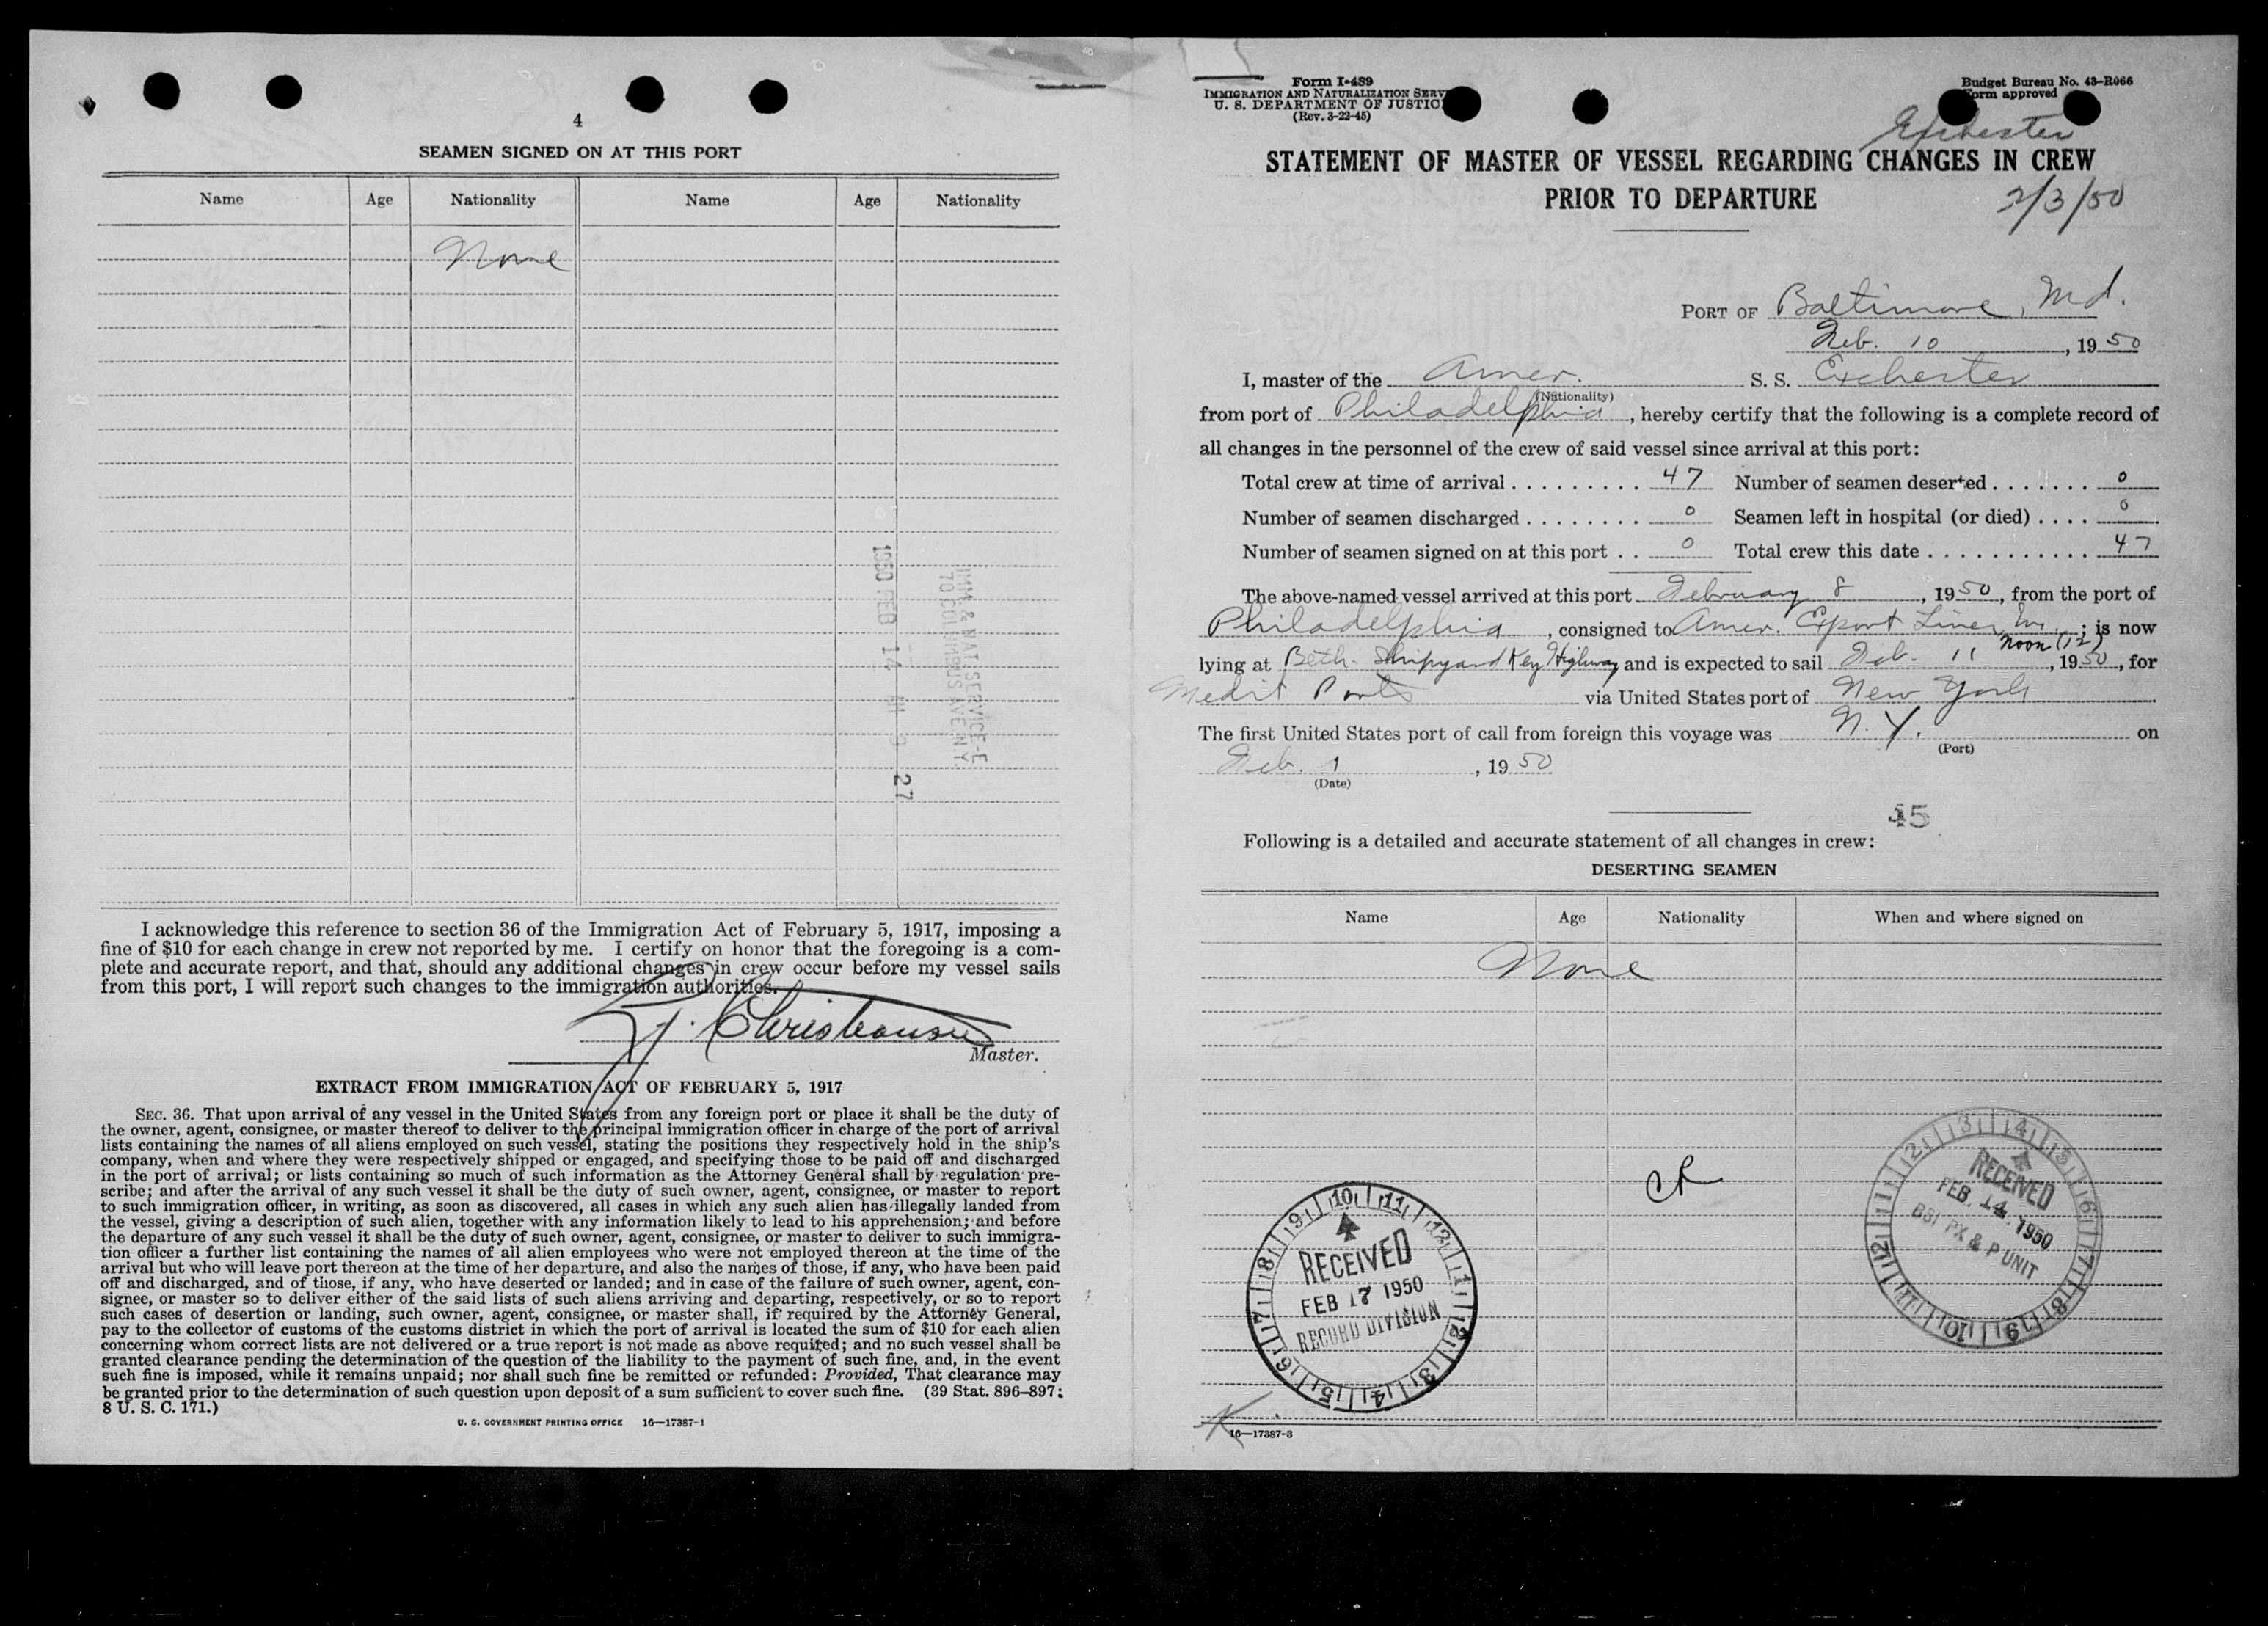 4
SEAMEN SIGNED ON AT THIS PORT
Name Age Nationality Name Age Nationality
None
1950 FEB 14 AM 9 27
IMM & NAT SERVICE-E
70 COLUMBUS AVE N Y
I acknowledge this reference to section 36 of the Immigration Act of February 5, 1917, imposing a
fine of $10 for each change in crew not reported by me. I certify on honor that the foregoing is a com-
plete and accurate report, and that, should any additional changes in crew occur before my vessel sails
from this port, I will report such changes to the immigration authorities.
Christiansen
Master.
EXTRACT FROM IMMIGRATION ACT OF FEBRUARY 5, 1917
SEC. 36. That upon arrival of any vessel in the United States from any foreign port or place it shall be the duty of
the owner, agent, consignee, or master thereof to deliver to the principal immigration officer in charge of the port of arrival
lists containing the names of all aliens employed on such vessel, stating the positions they respectively hold in the ship's
company, when and where they were respectively shipped or engaged, and specifying those to be paid off and discharged
in the port of arrival; or lists containing so much of such information as the Attorney General shall by regulation pre-
scribe; and after the arrival of any such vessel it shall be the duty of such owner, agent, consignee, or master to report
to such immigration officer, in writing, as soon as discovered, all cases in which any such alien has illegally landed from
the vessel, giving a description of such alien, together with any information likely to lead to his apprehension; and before
the departure of any such vessel it shall be the duty of such owner, agent, consignee, or master to deliver to such immigra-
tion officer a further list containing the names of all alien employees who were not employed thereon at the time of the
arrival but who will leave port thereon at the time of her departure, and also the names of those, if any, who have been paid
off and discharged, and of those, if any, who have deserted or landed; and in case of the failure of such owner, agent, con-
signee, or master so to deliver either of the said lists of such aliens arriving and departing, respectively, or so to report
such cases of desertion or landing, such owner, agent, consignee, or master shall, if required by the Attorney General,
pay to the collector of customs of the customs district in which the port of arrival is located the sum of $10 for each alien
concerning whom correct lists are not delivered or a true report is not made as above required; and no such vessel shall be
granted clearance pending the determination of the question of the liability to the payment of such fine, and, in the event
such fine is imposed, while it remains unpaid; nor shall such fine be remitted or refunded: Provided, That clearance may
be granted prior to the determination of such question upon deposit of a sum sufficient to cover such fine. (39 Stat. 896–897;
8 U. S. C. 171.)
U. S. GOVERNMENT PRINTING OFFICE 16—17387-1
Form I-489
IMMIGRATION AND NATURALIZATION SERV
U. S. DEPARTMENT OF JUSTIC
(Rev. 3-22-45)
Budget Bureau No. 43-R066
Form approved
Exchester
STATEMENT OF MASTER OF VESSEL REGARDING CHANGES IN CREW
PRIOR TO DEPARTURE
2/3/50
PORT OF Baltimore, Md.
Feb. 10, 1950
I, master of the Amer. S. S. Exchester
(Nationality)
from port of Philadelphia, hereby certify that the following is a complete record of
all changes in the personnel of the crew of said vessel since arrival at this port:
Total crew at time of arrival . . . . . . . . . 47 Number of seamen deserted . . . . . . . 0
Number of seamen discharged . . . . . . . . 0 Seamen left in hospital (or died) . . . . 0
Number of seamen signed on at this port . . 0 Total crew this date . . . . . . . . . . . . 47
The above-named vessel arrived at this port February 8, 1950, from the port of
Philadelphia, consigned to Amer. Export Lines, Inc.; is now
lying at Beth. Shipyard Key Highway and is expected to sail Feb. 11 Noon (12), 1950, for
Medit Ports via United States port of New York
The first United States port of call from foreign this voyage was N. Y. on
(Port)
Feb. 1, 1950
(Date)
45
Following is a detailed and accurate statement of all changes in crew:
DESERTING SEAMEN
Name Age Nationality When and where signed on
None
RECEIVED
FEB 17 1950
RECORD DIVISION
RECEIVED
FEB. 14. 1950
BSI PX & P UNIT
16—17387-3